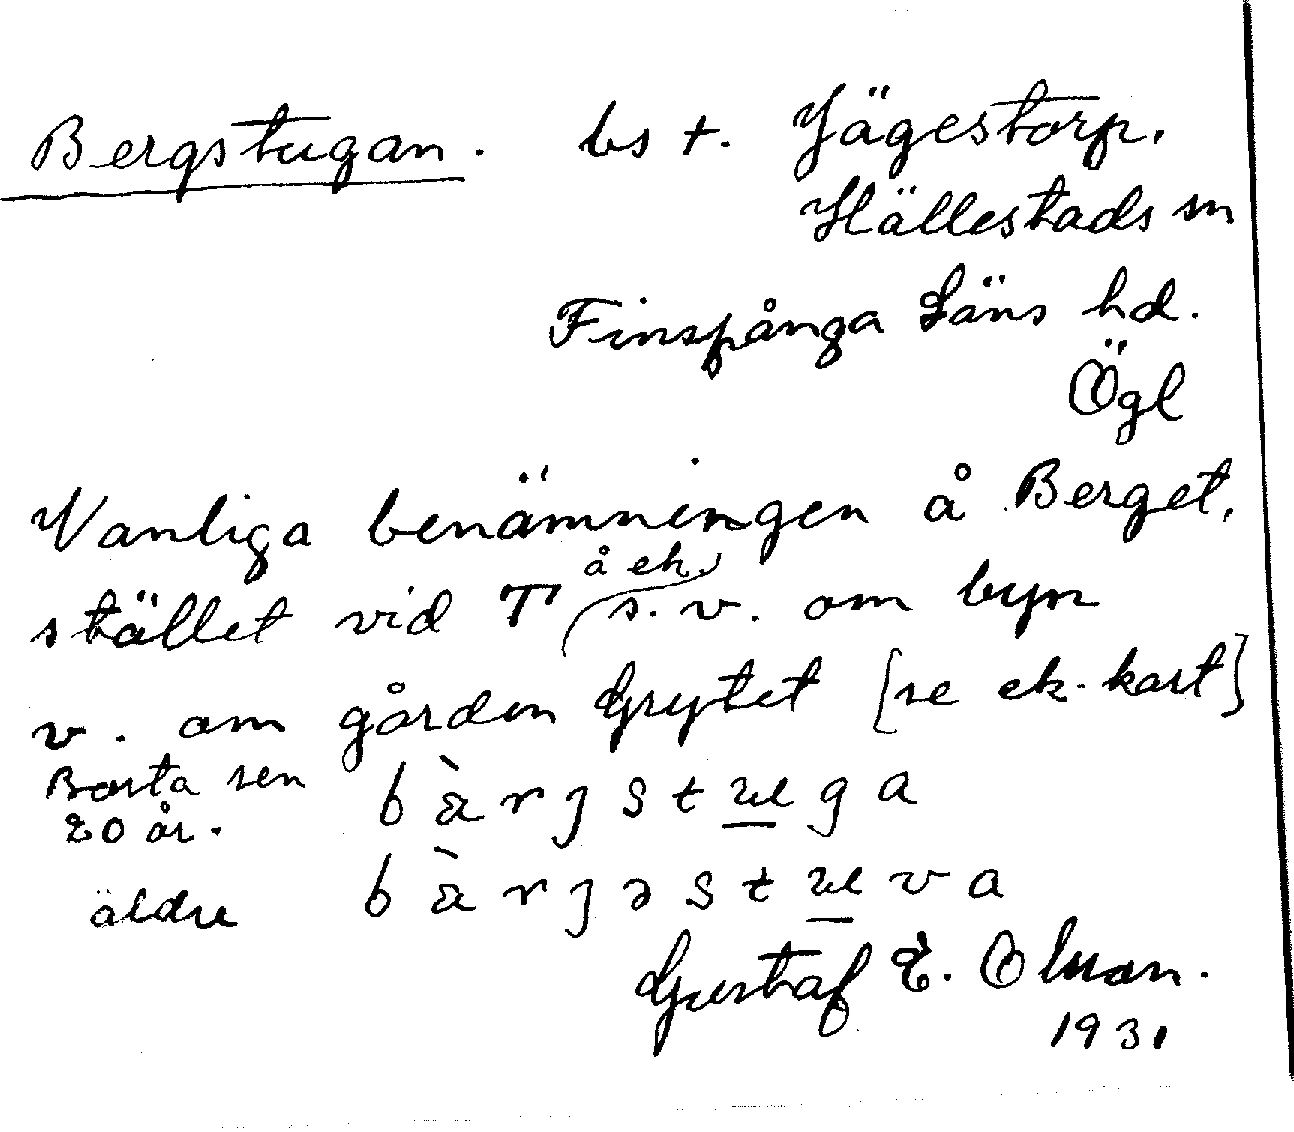 Bergstugan. bs t. Jägestorp,
Hällestads sn
Finspånga Läns hd.
Ögl
Vanliga benämningen å Berget,
å ek.
stället vid T s. v. om byn
v. om gården Grytet [se ek. kart]
Borta sen
20 år.
bä̀rjstuga
äldre bä̀rjəstuva
Gustaf E. Olsson.
1931